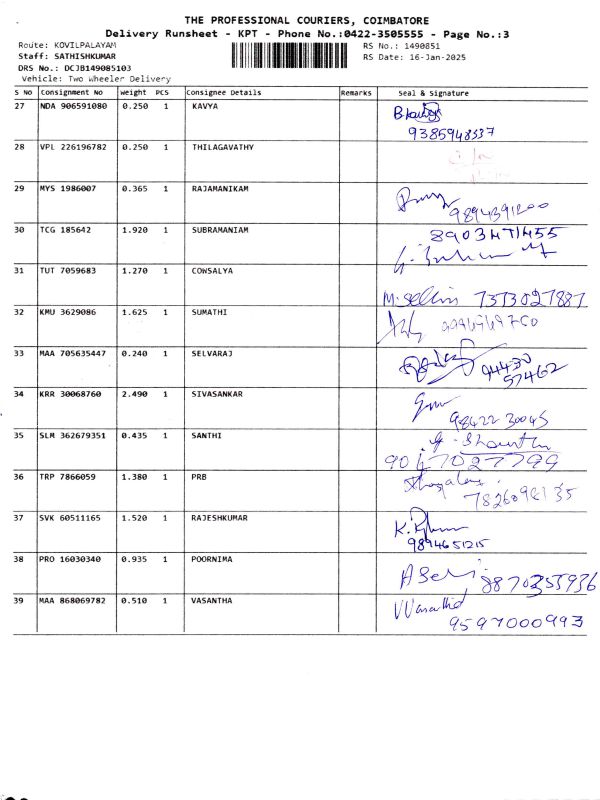 THE PROFESSIONAL COURIERS, COIMBATORE
Delivery Runsheet - KPT - Phone No.:0422-3505555 - Page No.:3
Route: KOVILPALAYAM RS No.: 1490851
Staff: SATHISHKUMAR RS Date: 16-Jan-2025
DRS No.: DCJB149085103
Vehicle: Two Wheeler Delivery
S NO Consignment No Weight PCS Consignee Details Remarks Seal & Signature
27 NDA 906591080 0.250 1 KAVYA
9385948537
28 VPL 226196782 0.250 1 THILAGAVATHY
29 MYS 1986007 0.365 1 RAJAMANIKAM
9894391200
30 TCG 185642 1.920 1 SUBRAMANIAM 8903471455
31 TUT 7059683 1.270 1 COWSALYA
M. Sellin 7373027887
32 KMU 3629086 1.625 1 SUMATHI
33 MAA 705635447 0.240 1 SELVARAJ 94430
57462
34 KRR 30068760 2.490 1 SIVASANKAR
98422 30045
35 SLM 362679351 0.435 1 SANTHI
9047027799
36 TRP 7866059 1.380 1 PRB
7826098135
37 SVK 60511165 1.520 1 RAJESHKUMAR
9894651215
38 PRO 16030340 0.935 1 POORNIMA
8870355936
39 MAA 868069782 0.510 1 VASANTHA VVasanthi
9597000993